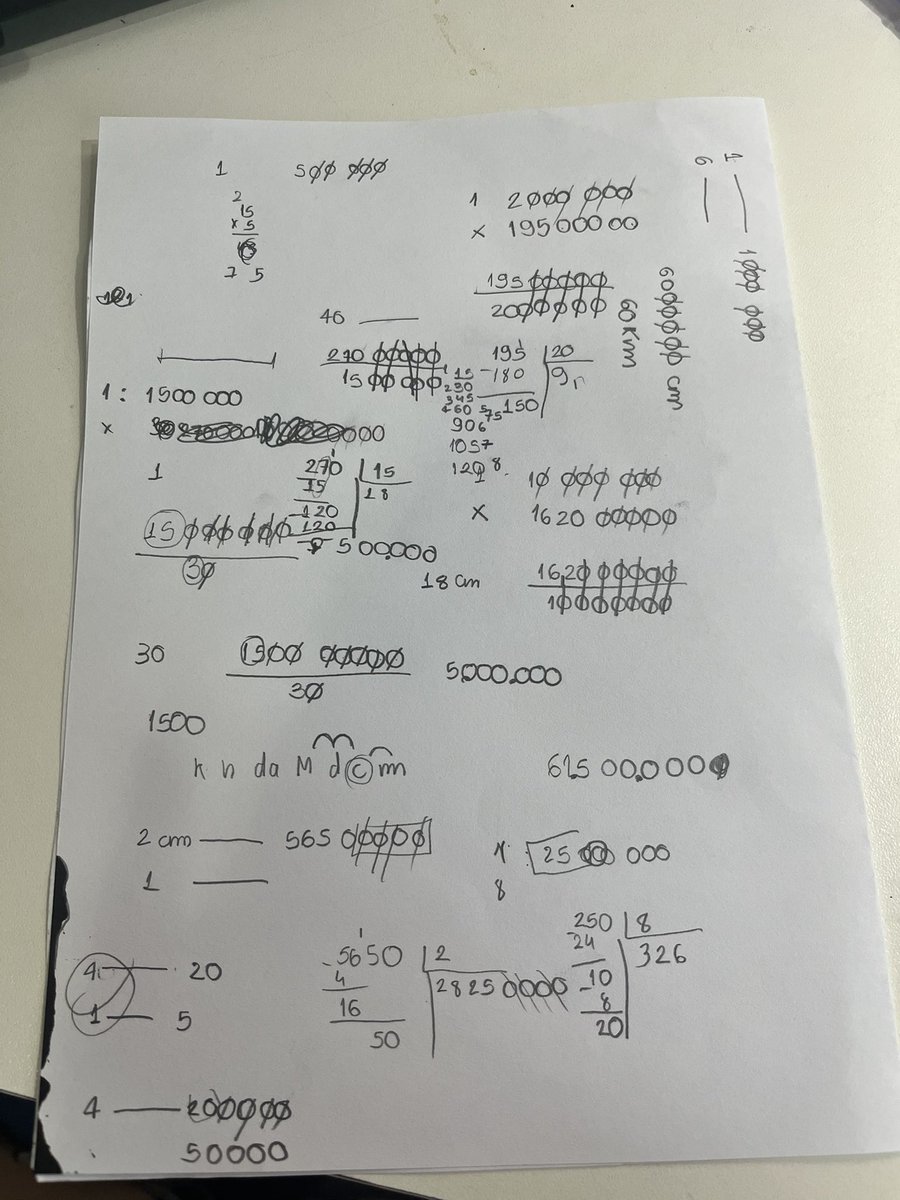 1 500 000
2
15
x 5
7 5
1 2000 000
x 19500000
19500000
2000000
1 1000 000
6 6000000 cm
60 Km
40
270 00000
15 00 00 0
195 20
-180 9,
150
1 15
230
345
460 575
906
1057
1 : 1500 000
x
1
270 15
15 18
-120
120
15 000 000
30
500.000
18 cm
10 000 000
x 1620 00000
16,20 00000
10000000
30
1500 00000
30
5.000.000
1500
k h da M d c m
61.5 00.000
2 cm 565 00000
1
1 25 00 000
8
4 20
1 5
-5650 2
4 28250000
16
50
250 8
24 326
-10
8
20
4 200000
50000